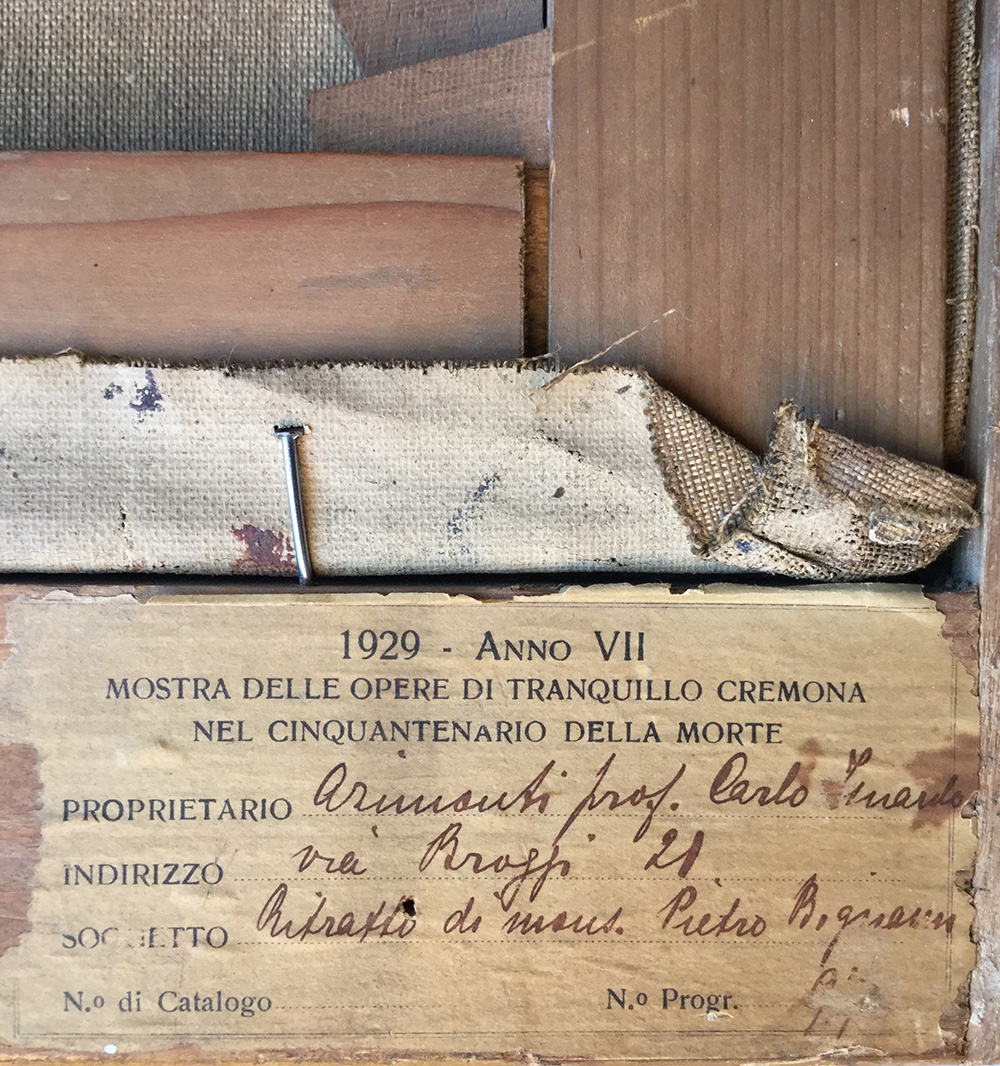 1929 - ANNO VII
MOSTRA DELLE OPERE DI TRANQUILLO CREMONA
NEL CINQUANTENARIO DELLA MORTE
PROPRIETARIO Arimonti prof. Carlo
INDIRIZZO via Broggi 21
SOGGETTO Ritratto di mons. Pietro
N.o di Catalogo
N.o Progr.